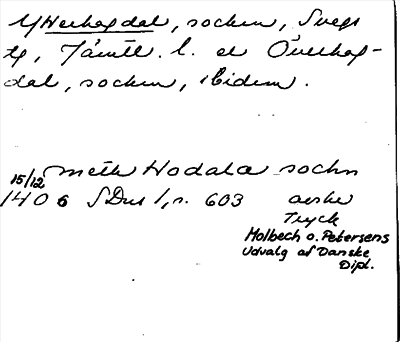 Ytterhogdal, socken, Svegs
tg, Jämtl. l. el Överhog-
dal, socken, ibidem.
meth Hodala sochn
15/12
1406 SDns 1, s. 603 avskr
Tryck
Molbech o. Petersens
Udvalg af Danske
Dipl.